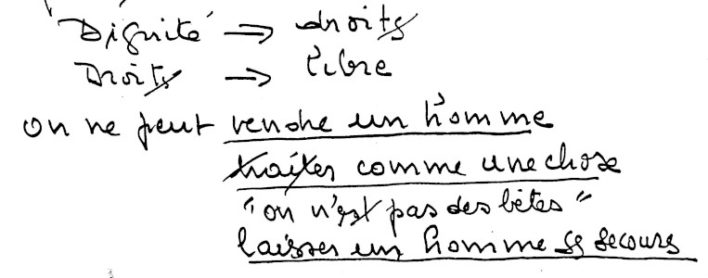 Dignité ⇒ droits
Droits → libre
on ne peut vendre un homme
traiter comme une chose
"on n'est pas des bêtes"
laisser un homme ss secours